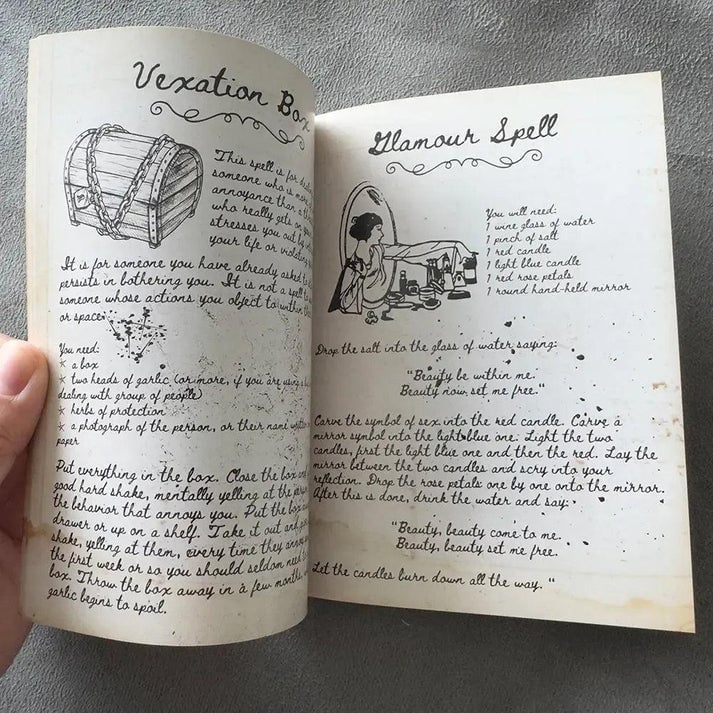 Vexation Box
This spell is for
someone who is more
annoyance than a
who really gets on
stresses you out by
your life or violating
It is for someone you have already asked to
persists in bothering you. It is not a spell
someone whose actions you object to within
or space
You need:
* a box
* two heads of garlic (or more, if you are using a
dealing with group of people)
* herbs of protection
* a photograph of the person, or their name written
paper
Put everything in the box. Close the box and
good hard shake, mentally yelling at the
the behavior that annoys you. Put the box
drawer or up on a shelf. Take it out and
shake, yelling at them, every time they annoy
the first week or so you should seldom need
box. Throw the box away in a few months,
garlic begins to spoil.
Glamour Spell
You will need:
1 wine glass of water
1 pinch of salt
1 red candle
1 light blue candle
1 red rose petals
1 round hand-held mirror
Drop the salt into the glass of water saying:
"Beauty be within me.
Beauty now set me free."
Carve the symbol of sex into the red candle. Carve a
mirror symbol into the light blue one. Light the two
candles, first the light blue one and then the red. Lay the
mirror between the two candles and scry into your
reflection. Drop the rose petals one by one onto the mirror.
After this is done, drink the water and say:
"Beauty, beauty come to me.
Beauty, beauty set me free.
Let the candles burn down all the way. "